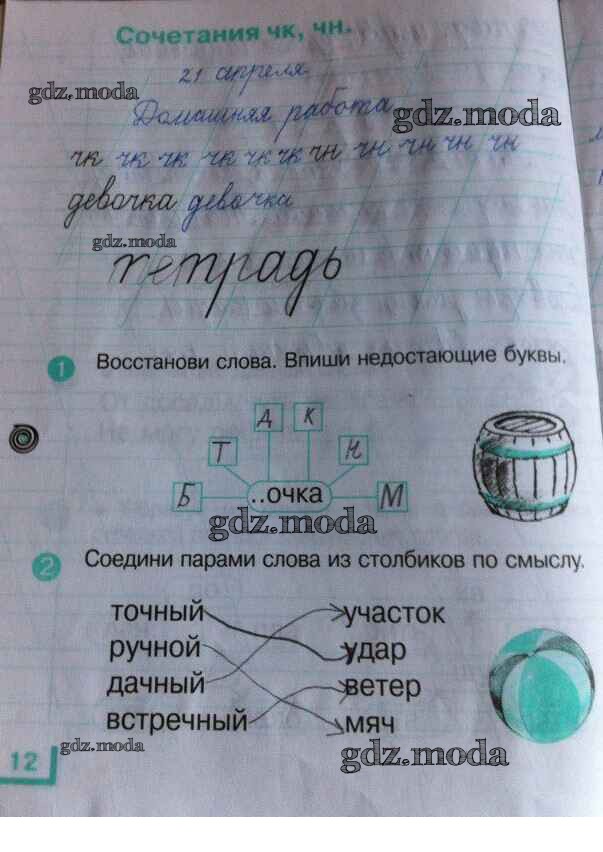 Сочетания чк, чн.
21 апреля
gdz.moda
Домашняя работа
gdz.moda
чк чк чк чк чк чк чн чн чн чн чн
девочка девочка
gdz.moda
тетрадь
1 Восстанови слова. Впиши недостающие буквы.
Д К
Т Н
Б ..очка М
gdz.moda
2 Соедини парами слова из столбиков по смыслу.
точный участок
ручной удар
дачный ветер
встречный мяч
12 gdz.moda gdz.moda